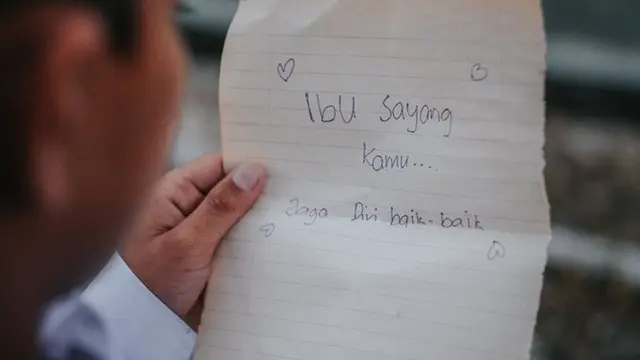 IbU Sayang
Kamu....
Jaga Diri baik-baik